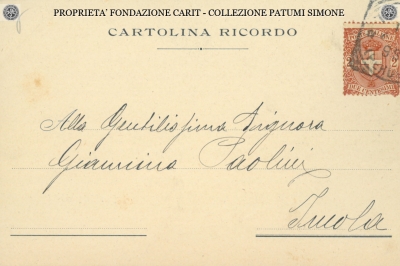 PROPRIETA' FONDAZIONE CARIT - COLLEZIONE PATUMI SIMONE
CARTOLINA RICORDO
Alla Gentilissima Signora
Giannina Paolini
Imola
DUE CENTESIMI